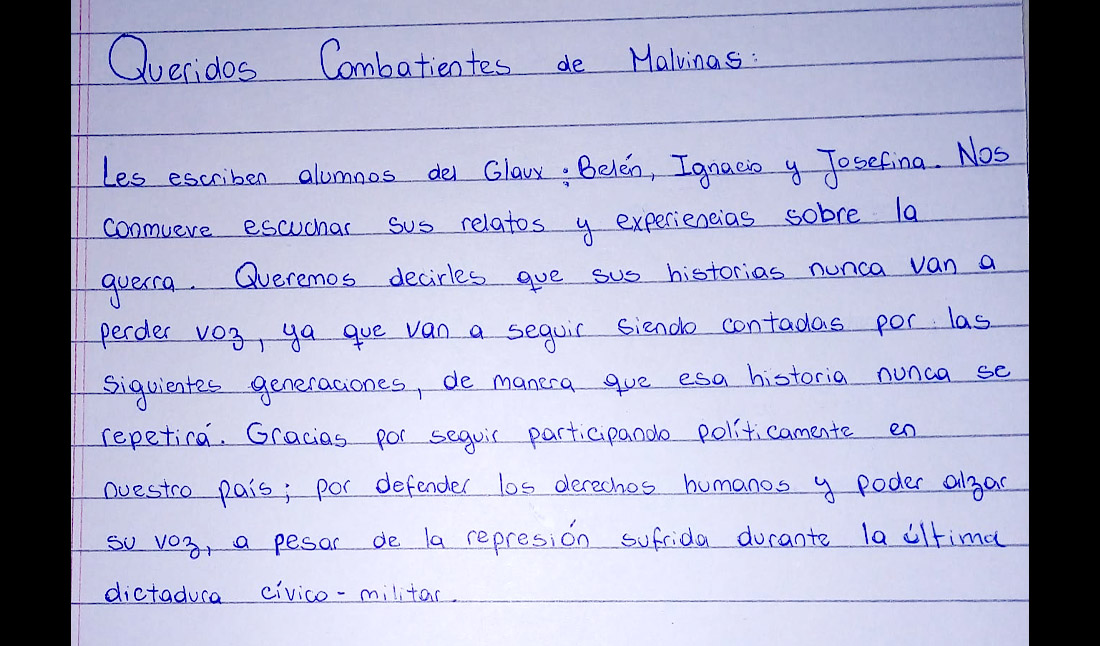 Queridos Combatientes de Malvinas:
Les escriben alumnos del Glaux: Belén, Ignacio y Josefina. Nos
conmueve escuchar sus relatos y experiencias sobre la
guerra. Queremos decirles que sus historias nunca van a
perder voz, ya que van a seguir siendo contadas por las
siguientes generaciones, de manera que esa historia nunca se
repetirá. Gracias por seguir participando políticamente en
nuestro país; por defender los derechos humanos y poder alzar
su voz, a pesar de la represión sufrida durante la última
dictadura cívico-militar.